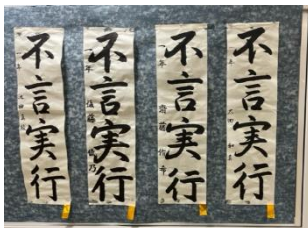 不言実行
不言実行
不言実行
不言実行